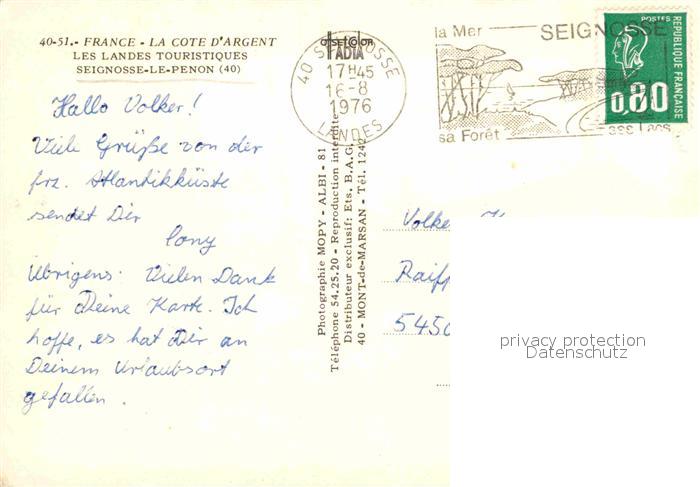 40-51.- FRANCE - LA COTE D'ARGENT
LES LANDES TOURISTIQUES
SEIGNOSSE-LE-PENON (40)
Hallo Volker!
Viele Grüße von der
frz. Atlantikküste
sendet Dir
Cony
Übrigens: Vielen Dank
für Deine Karte. Ich
hoffe, es hat Dir an
Deinem Urlaubsort
gefallen.
OFFSETCOLOR
40 SEIGNOSSE
17H45
16-8
1976
LANDES
la Mer
SEIGNOSSE
sa Forêt
ses Lacs
POSTES
REPUBLIQUE FRANÇAISE
0,80
Photographie MOPY - ALBI - 81
Téléphone 54.25.20 - Reproduction interdite
Distributeur exclusif: Ets. B.A.G.
40 - MONT-de-MARSAN - Tél. 1242
Volker
Raiff
5450
privacy protection
Datenschutz